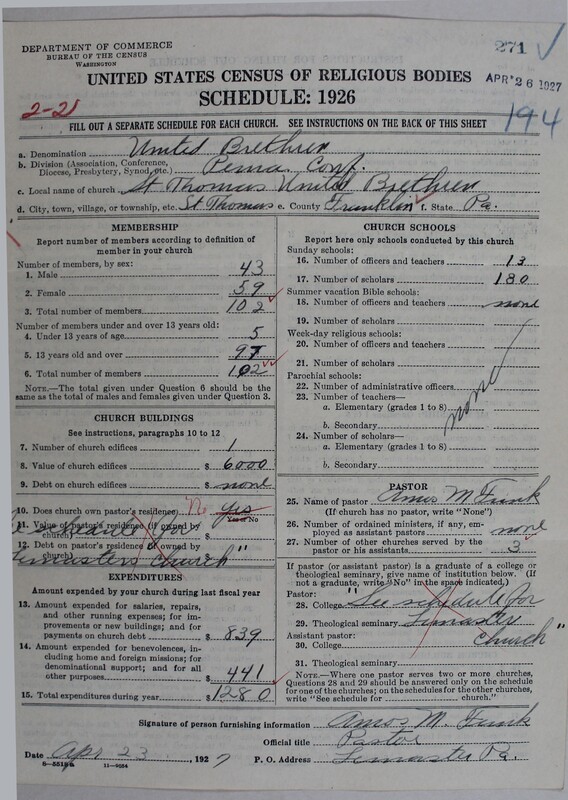 DEPARTMENT OF COMMERCE
BUREAU OF THE CENSUS
WASHINGTON
271
APR 26 1927
UNITED STATES CENSUS OF RELIGIOUS BODIES
SCHEDULE: 1926
2-21
194
FILL OUT A SEPARATE SCHEDULE FOR EACH CHURCH. SEE INSTRUCTIONS ON THE BACK OF THIS SHEET
a. Denomination United Brethren
b. Division (Association, Conference, Diocese, Presbytery, Synod, etc.) Penna. Conf.
c. Local name of church St Thomas United Brethren
d. City, town, village, or township, etc. St Thomas e. County Franklin f. State Pa.
MEMBERSHIP
Report number of members according to definition of
member in your church
Number of members, by sex:
1. Male 43
2. Female 59
3. Total number of members 102
Number of members under and over 13 years old:
4. Under 13 years of age 5
5. 13 years old and over 97
6. Total number of members 102
NOTE.—The total given under Question 6 should be
the same as the total of males and females given under Question 3.
CHURCH BUILDINGS
See instructions, paragraphs 10 to 12
7. Number of church edifices 1
8. Value of church edifices $ 6000
9. Debt on church edifices $ none
10. Does church own pastor's residence? No Yes
Yes or No
11. Value of pastor's residence (if owned by
church)
12. Debt on pastor's residence (if owned by
church)
church"
EXPENDITURES
Amount expended by your church during last fiscal year
13. Amount expended for salaries, repairs,
and other running expenses; for im-
provements or new buildings; and for
payments on church debt $ 839
14. Amount expended for benevolences,
including home and foreign missions; for
denominational support; and for all
other purposes $ 441
15. Total expenditures during year $ 1280
CHURCH SCHOOLS
Report here only schools conducted by this church
Sunday schools:
16. Number of officers and teachers 13
17. Number of scholars 180
Summer vacation Bible schools:
18. Number of officers and teachers none
19. Number of scholars
Week-day religious schools:
20. Number of officers and teachers
21. Number of scholars
Parochial schools:
22. Number of administrative officers
23. Number of teachers—
a. Elementary (grades 1 to 8)
none
b. Secondary
24. Number of scholars—
a. Elementary (grades 1 to 8)
b. Secondary
PASTOR
25. Name of pastor Amos M. Funk
(If church has no pastor, write "None")
26. Number of ordained ministers, if any, em-
ployed as assistant pastors none
27. Number of other churches served by the
pastor or his assistants 3
If pastor (or assistant pastor) is a graduate of a college or
theological seminary, give name of institution below. (If
not a graduate, write "No" in the space indicated.)
Pastor:
28. College "See schedule for
29. Theological seminary Lemaster
Assistant pastor:
30. College church"
31. Theological seminary
NOTE.—Where one pastor serves two or more churches,
Questions 28 and 29 should be answered only on the schedule
for one of the churches; on the schedules for the other churches,
write "See schedule for church."
Signature of person furnishing information Amos M. Funk
Official title Pastor
Date Apr 23, 1927 P. O. Address Lemaster Pa.
11-9564